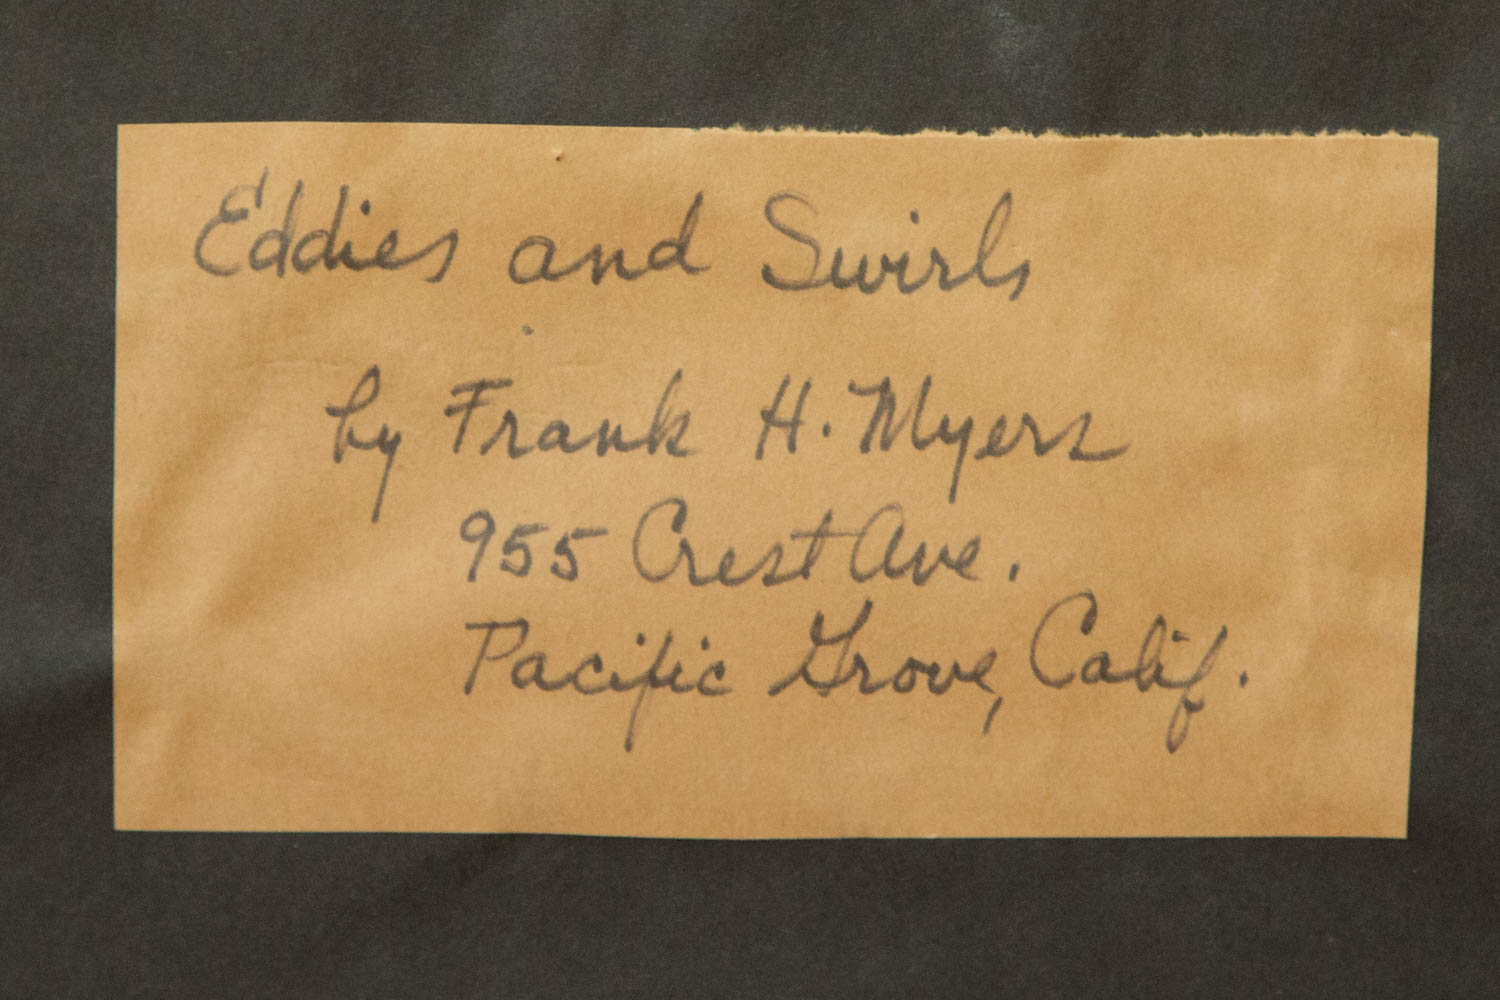 Eddies and Swirls
by Frank H. Myers
955 Crest Ave.
Pacific Grove, Calif.